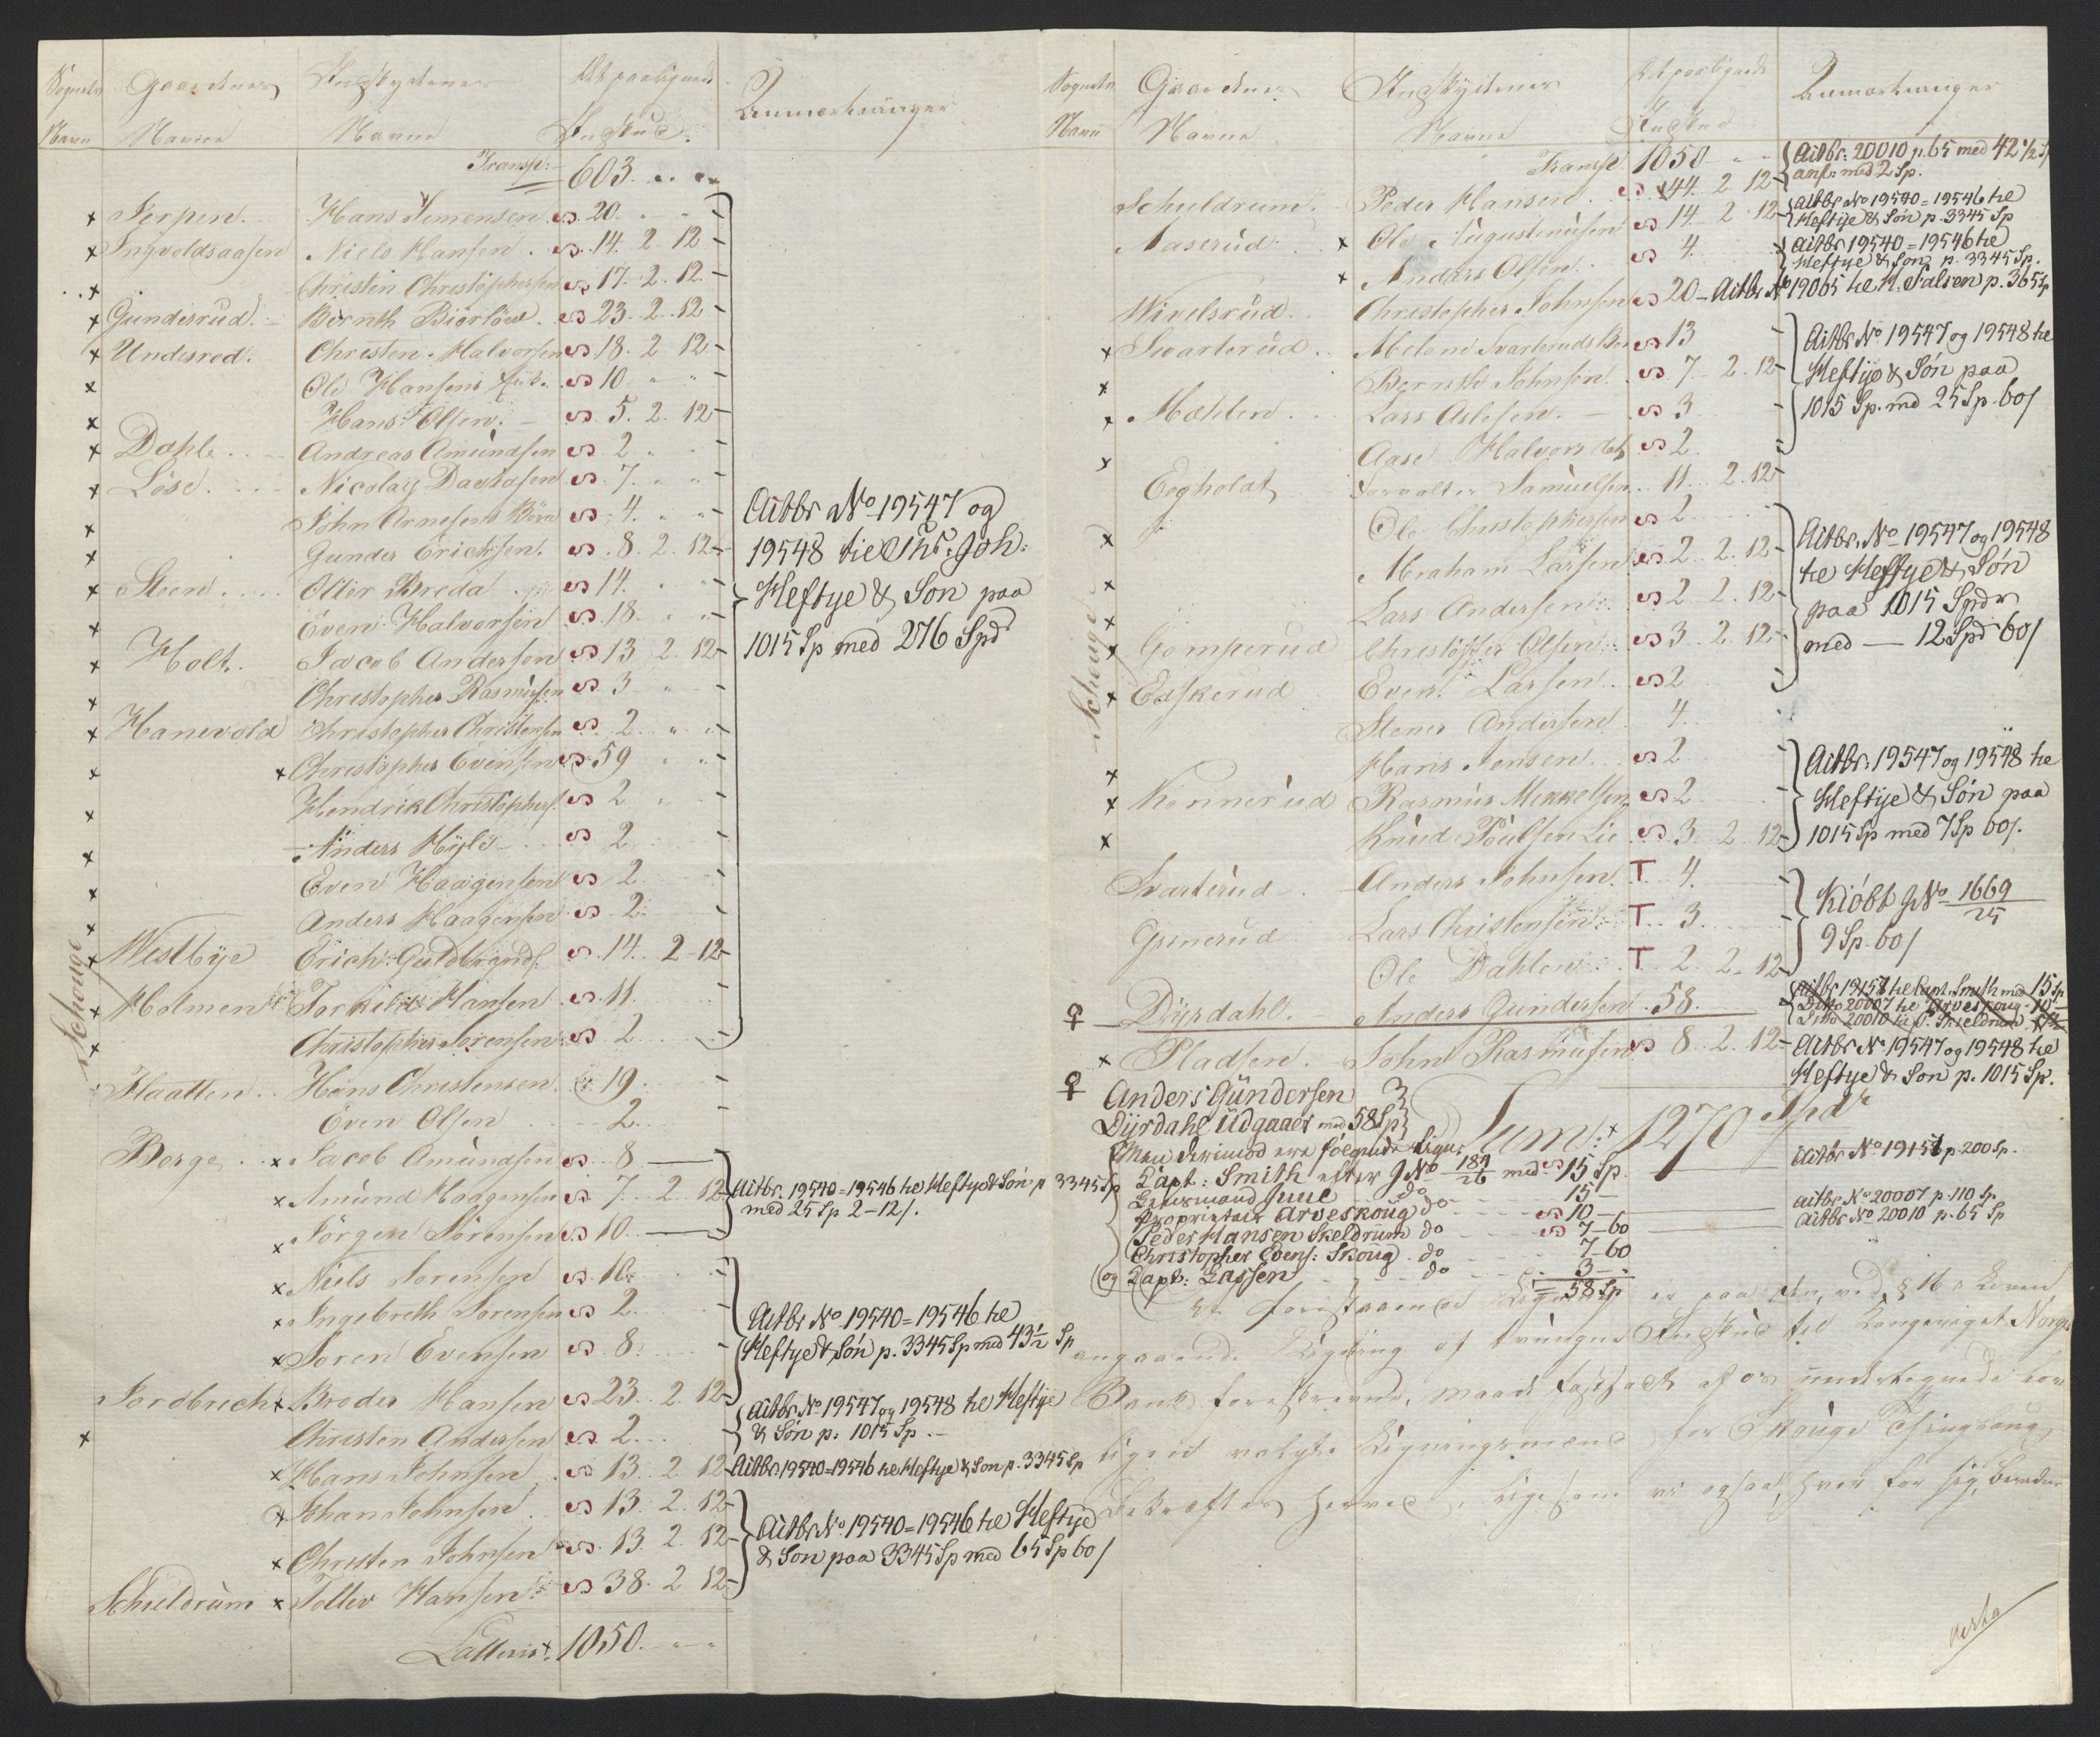 Sognets Gaardenes Indskydernes Det paalignede Anmærkninger
Navn Navne Navne Indskud.
Transp: 603
Jerpen. Hans Simensen 20
Ingvoldsaasen Niels Hansen 14. 2 12
Christen Christophersen 17. 2. 12
Gunderud. Bernth 23 2 12
Underød. Christen Halvorsen 18. 2 12
Ole Hansens 10
Hans Olsen. 5. 2. 12
Dahle Andreas Amundsen 2
Løse. Nicolay Davidsen 7.
John Arnesens 4.
Gunder Erichsen. 8. 2. 12
Steen Otter Breda 14.
Even Halvorsen 18.
Holt. Jacob Andersen 13 2. 12
Christopher Rasmusen 3
Hanevold Christopher Christensen 2
Christopher Evensen 59
Hendrik Christophers. 2
Anders Hyls 2
Even Haagensen 2
Anders Haagensen 2.
Westbye Erich Guldbrands. 14. 2 12
Schouge
Holmen Torkild Hansen 11.
Christopher Sørensen 2
Aitbr No 19547 og
19548 til Joh:
Heftye & Søn paa
1015 Sp med 276 Spd
Flaatten Hans Christensen 19.
Even Olsen 2.
Berge Jacob Amundsen 8
Amund Haagensen 7. 2 12
Jørgen Sørensen 10
Aitbr. 19540=19546 til Heftye & Søn p 3345 Sp
med 25 Sp 2-12/.
Niels Sørensen 16.
Ingebreth Sørensen 2.
Søren Evensen 8.
Jordbrech Broder Hansen 23. 2 12
Aitbr No 19540=19546 til
Heftye & Søn p. 3345 Sp med 43½ Sp
Christen Andersen 2.
Aitbr. No 19547 og 19548 til Heftye
& Søn p. 1015 Sp.
Hans Johnsen 13. 2 12 Aitbr 19540=19546 til Heftye & Søn p. 3345 Sp
Johan Johnsen 13. 2. 12
Christen Johnsen 13. 2 12
Schieldrum Tollev Hansen 38. 2 12
Aitbr No 19540=19546 til Heftye
& Søn paa 3345 Sp med 65 Sp 60/
Latteris. 1050.
Sognets Gaardenes Indskydernes Det paalignede Anmærkninger
Navn Navne Navne Indskud
Transp 1050
Schuldrum Peder Hansen 44. 2 12 Aitbr: 20010 p. 65 med 42½ Sp
anf: med 2 Sp.
Aaserud Ole Augustinusen 14. 2 12 Aitbr No 19540=19546 til
Heftye & Søn p. 3345 Sp
Anders Olsen 4. Aitbr 19540=19546 til
Heftye & Søn p. 3345 Sp.
Wivelsrud Christopher Johnsen 20 Aitbr No 19065 til N. Falsen p. 365 Sp
Svarterud Svarteruds 13
Bernth Johnsen. 7. 2 12
Mæhlen Lars Aslesen. 3
Aase Halvors dat. 2
Aitbr No 19547 og 19548 til
Heftye & Søn paa
1015 Sp. md 25 Sp. 60/
Eegholdt Forvalter Samuelsen 11. 2 12
Ole Christophersen 2
Abraham Larsen 2 2. 12
Lars Andersen 2 2. 12
Gomperud Christopher Olsen 3 2. 12
Eeskerud Even Larsen 2
Aitbr. No 19547 og 19548
til Heftye & Søn
paa 1015 Spdr
med — 12 Spd 60/
Schouge
Stener Andersen 4.
Hans Jensen 2
Konnerud Rasmus Mikkelsen 2
Knud Poulsen Lie 3. 2 12
Aitbr. 19547 og 19548 til
Heftye & Søn paa
1015 Sp med 7 Sp 60/.
Svarterud Anders Johnsen. T 4.
Lars Christensen T 3.
Ole Dahlen T 2. 2. 12
Kiøbt No 1669/25
9 Sp. 60/
Dyrdahl. Anders Gundersen 58.
Aitbr 19151 til Capt. Smith med 15 Sp
Ditto 20007 til Arveskoug 10
Ditto 20010 til P. Skieldrum
Pladsen. John Rasmusen 8. 2. 12 Aitbr No 19547 og 19548 til
Heftye & Søn p. 1015 Sp.
Anders Gundersen
Dyrdahl Udgaaer med 58 Sp
Sum: 1270 Spdr
Men derimod ere følgende Lign:
Capt: Smith efter No 189/26 med 15 Sp. Aitbr No 19151 p 200 Sp.
Lensmand Juul do 15
Proprietair Arveskoug do 10 Aitbr No 20007 p. 110 Sp.
Peder Hansen Skeldrum do 7-60 Aitbr No 20010 p. 65 Sp
Christopher Evens: Skoug do 7-60
og Capt: Lassen do 3
58 Sp
At foranstaaende Ligning er paa den, ved § 16 Loven
angaaende Ligning af tvungne Indskud til Kongeriget Norges
Bank foreskrevne, maade fastsadt af os undertegnede
valgte Ligningsmænd for Skouge Thinglaug
Bekræftes herved, ligesom vi ogsaa, hver for sig,
verte